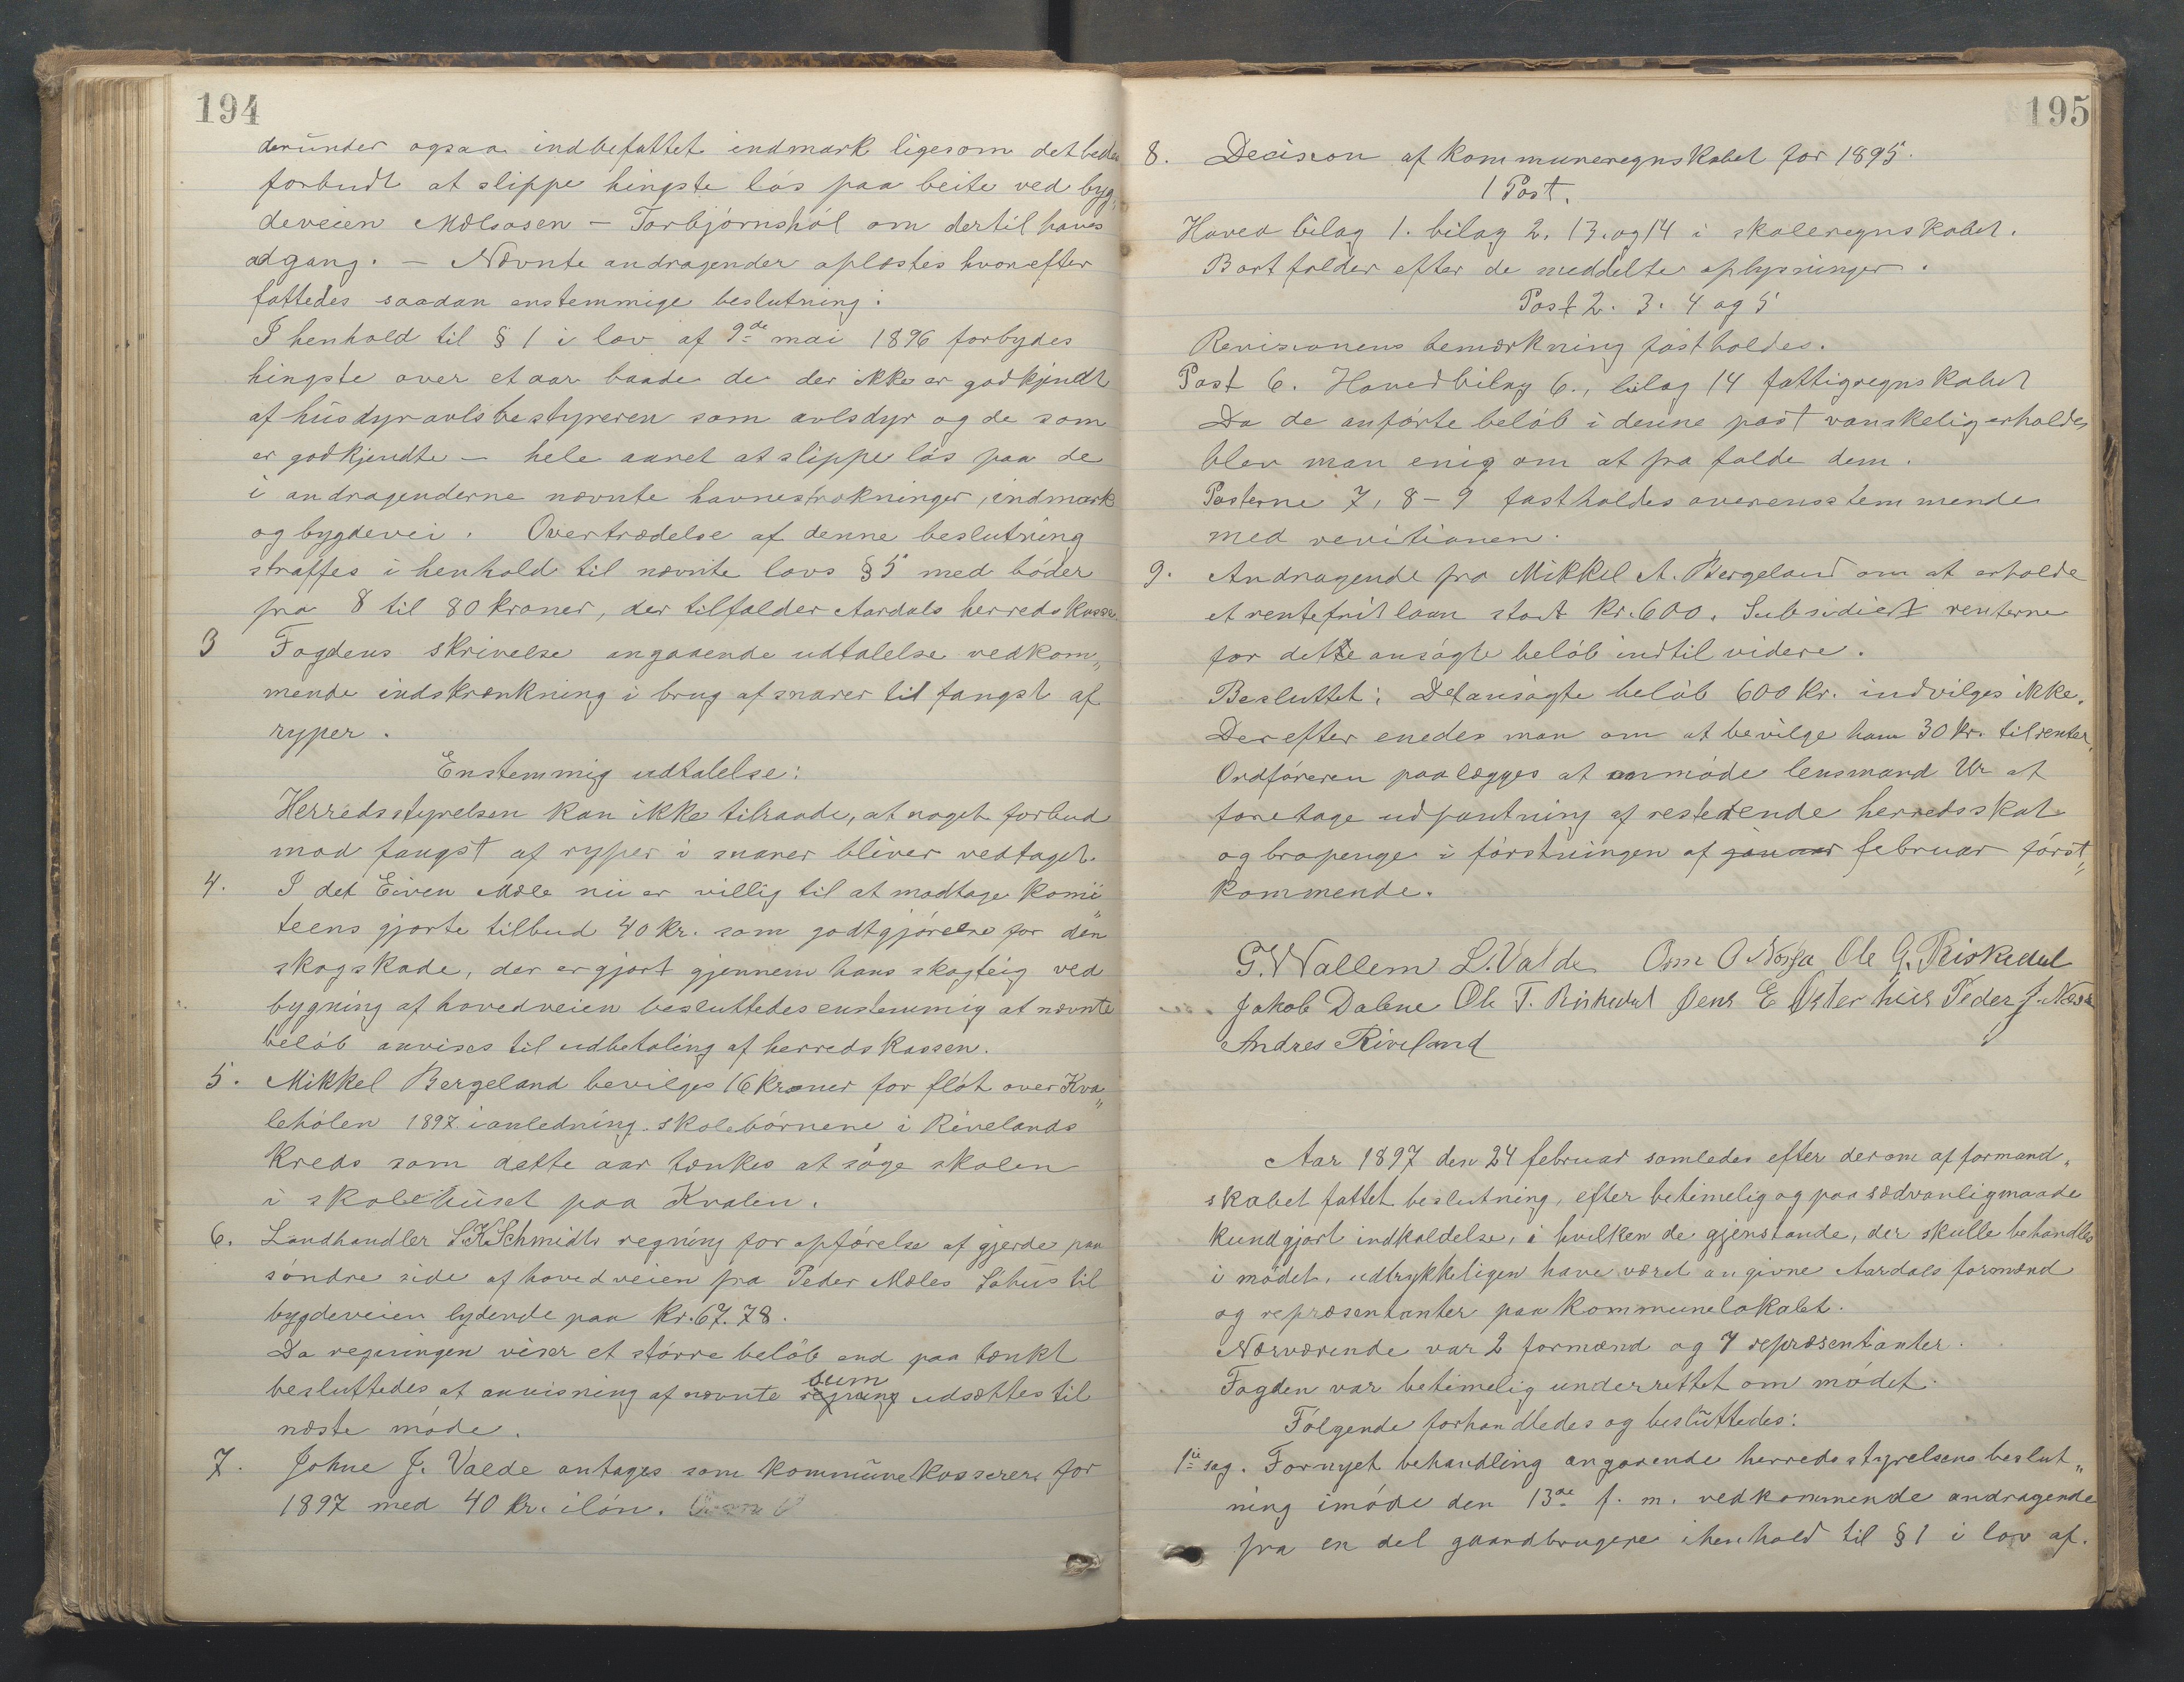 194
derunder ogsaa indbefattet indmark ligesom det bedes
forbudt at slippe hingste lös paa beite ved byg„
deveien Mælsosen – Torbjörnshöl om dertil haves
adgang. – Nævnte andragender oplæstes hvorefter
fattedes saadan enstemmige beslutning:
I henhold til § 1 i lov af 9de mai 1896 forbydes
hingste over et aar baade de der ikke er godkjendt
af husdyravlsbestyreren som avlsdyr og de som
er godkjendte – hele aaret at slippe lös paa de
i andragenderne nævnte havnestrækninger, indmark
og bygdevei. Overtrædelse af denne beslutning
straffes i henhold til nævnte lovs § 5 med böder
fra 8 til 80 kroner, der tilfalder Aardals herredskasse.
3 Fogdens skrivelse angaaende udtalelse vedkom„
mende indskrænkning i brug af snarer til fangst af
ryper.
Enstemmig udtalelse:
Herredsstyrelsen kan ikke tilraade, at noget forbud
mod fangst af ryper i snarer bliver vedtaget.
4. I det Eiven Mæle nu er villig til at modtage komi„
teens gjorte tilbud 40 kr. som godtgjörelse for den
skogskade, der er gjort gjennem hans skogteig ved
bygning af hovedveien besluttedes enstemmig at nævnte
belöb anvises til udbetaling af herredskassen.
5. Mikkel Bergeland bevilges 16 kroner for flöt over Kva„
lehölen 1897 i anledning skolebörnene i Rivelands
Kreds som dette aar tænkes at söge skolen
i skolehuset paa Kvalen.
6. Landhandler S.K.Schmidts regning for opförelse af gjerde paa
söndre side af hovedveien fra Peder Mæles Löhus til
bygdeveien lydende paa kr. 67.78.
Da regningen viser et större belöb end paa tænkt
besluttedes at anvisning af nævnte regning sum udsættes til
næste möde.
7. Johne J. Valde antages som kommunekasserer for
1897 med 40 kr. i lön.
195
8. Decision af kommuneregnskabet for 1895.
1 Post.
Hoved bilag 1. bilag 2. 13. og 14 i skoleregnskabet.
Bortfalder efter de meddelte oplysninger.
Post 2. 3. 4 og 5
Revisionens bemærkning fastholdes.
Post 6. Hovedbilag 6., bilag 14 fattigregnskabet
Da de anförte belöb i denne post vanskelig erholdes
blev man enig om at fra falde dem.
Posterne 7, 8 – 9 fastholdes overensstemmende
med revitionen.
9. Andragende fra Mikkel A. Bergeland om at erholde
et rentefrit laan stort kr. 600. Subsidiert renterne
for dette ansögte belöb indtil videre.
Besluttet: Det ansögte belöb 600 kr. indvilges ikke.
Derefter enedes man om at bevilge ham 30 kr. til renter.
Ordföreren paalægges at anmode lensmand Ur at
foretage udpantning af resterende herredsskat
og bropenge i förstningen af januar februar först„
kommende.
G. Wallem L. Valde Ole G. Riskedal
Jakob Dalene Ole T. Riskedal Jens E Österhus Peder J. Næsse
Andres Riveland
Aar 1897 den 24 februar samledes efter derom af formand„
skabet fattet beslutning, efter betimelig og paa sædvanligmaade
kundgjort indkaldelse, i hvilken de gjenstande, der skulle behandles
i mödet, udtrykkeligen have været angivne Aardals formænd
og repræsentanter paa kommunelokalet.
Nærværende var 2 formænd og 7 repræsentanter.
Fogden var betimelig underrettet om mödet.
Fölgende forhandledes og besluttedes:
1te sag. Fornyet behandling angaaende herredsstyrelsens beslut„
ning i möde den 13de f. m. vedkommende andragende
fra en del gaardbrugere i henhold til § 1 i lov af.